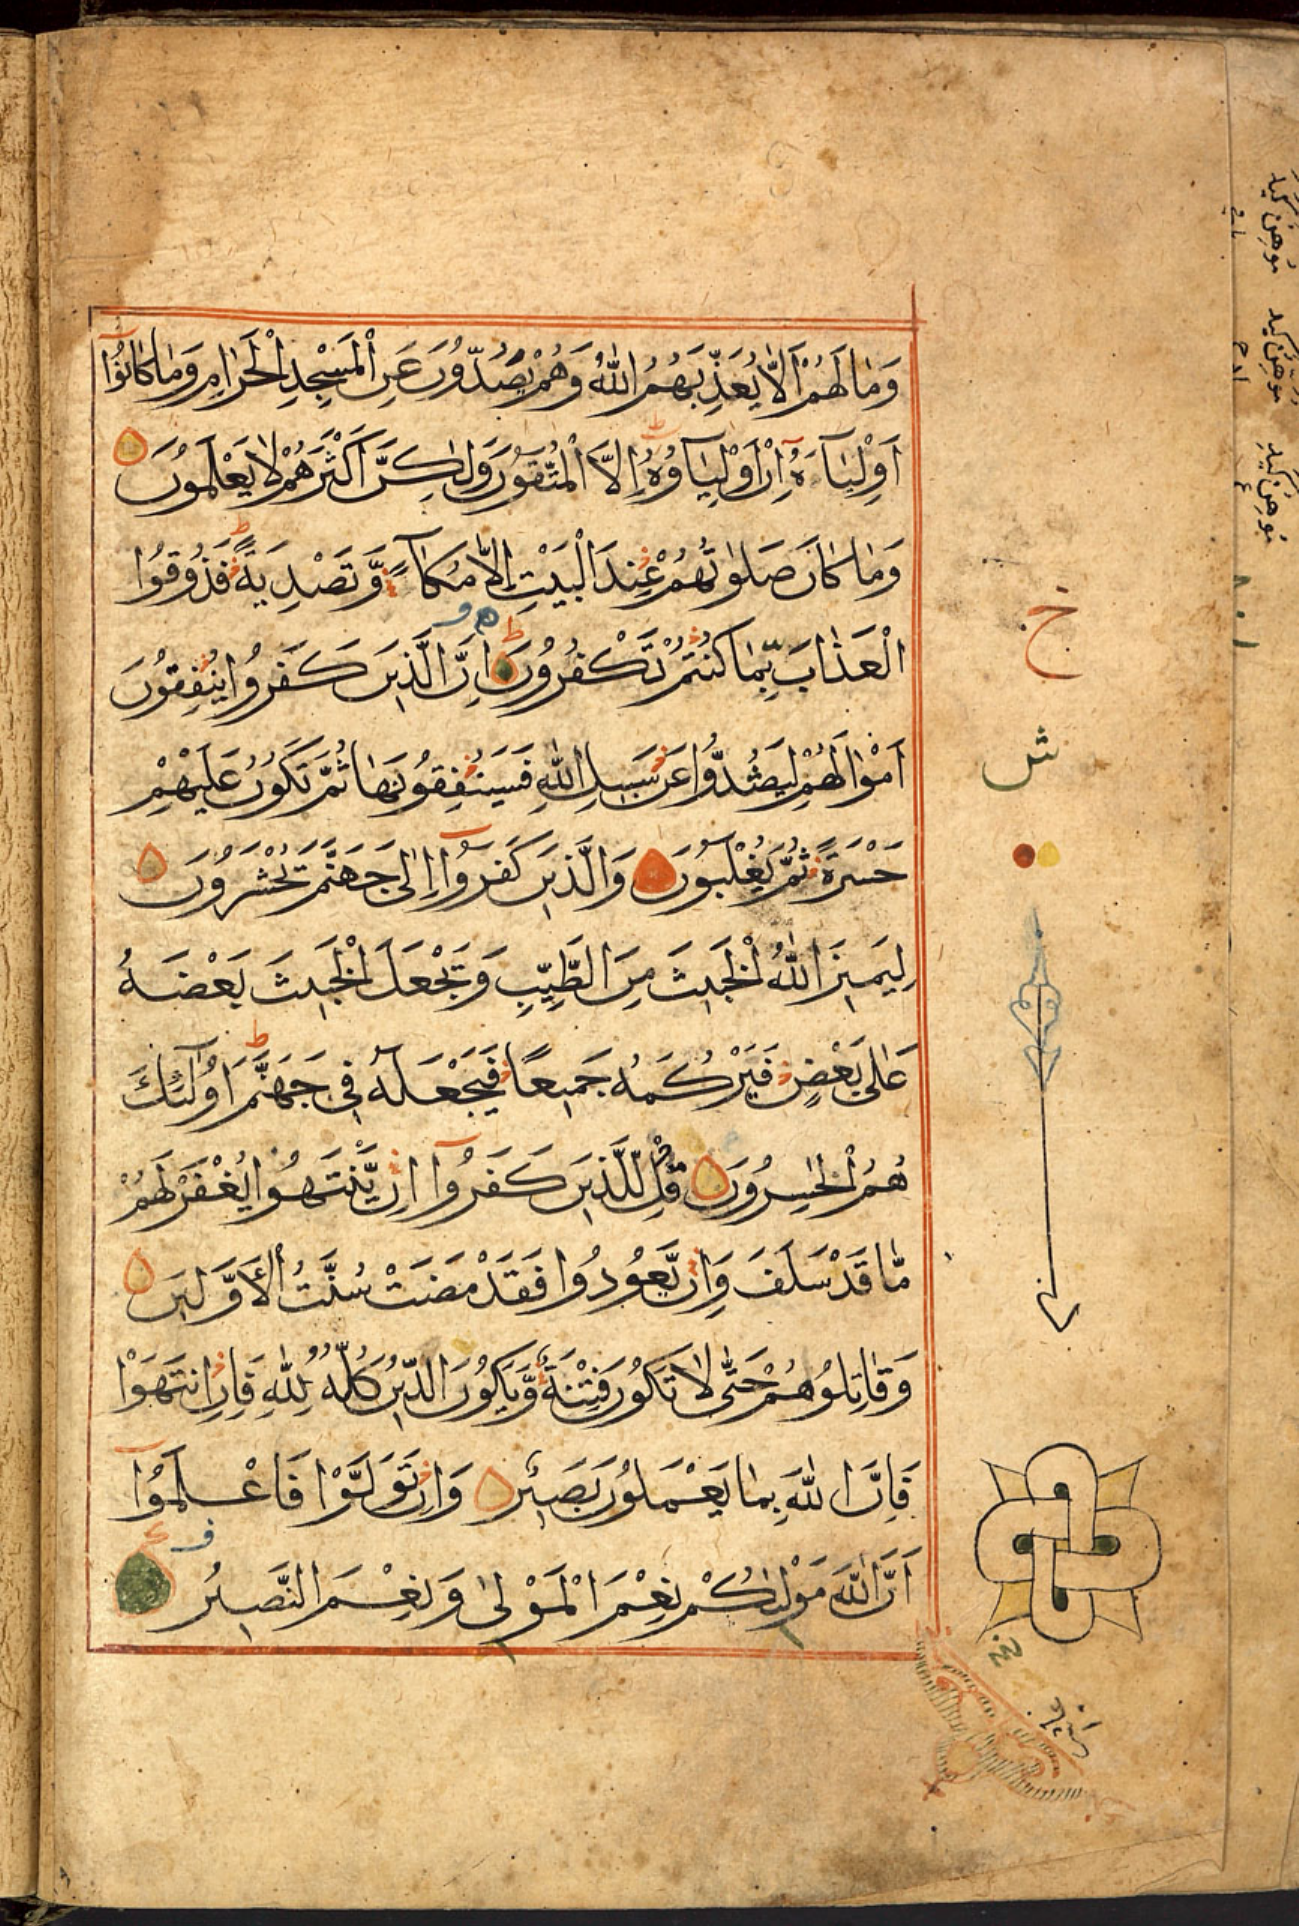 وَمَا لَهُمْ اَلَّا يُعَذِّبَهُمُ اللّٰهُ وَهُمْ يَصُدُّوْنَ عَنِ الْمَسْجِدِ الْحَرَامِ وَمَا كَانُوْٓا
اَوْلِيَآءَهٗ اِنْ اَوْلِيَآؤُهٗٓ اِلَّا الْمُتَّقُوْنَ وَلٰكِنَّ اَكْثَرَهُمْ لَا يَعْلَمُوْنَ
وَمَا كَانَ صَلَاتُهُمْ عِنْدَ الْبَيْتِ اِلَّا مُكَآءً وَّتَصْدِيَةً فَذُوْقُوا
الْعَذَابَ بِمَا كُنْتُمْ تَكْفُرُوْنَ اِنَّ الَّذِيْنَ كَفَرُوْا يُنْفِقُوْنَ
اَمْوَالَهُمْ لِيَصُدُّوْا عَنْ سَبِيْلِ اللّٰهِ فَسَيُنْفِقُوْنَهَا ثُمَّ تَكُوْنُ عَلَيْهِمْ
حَسْرَةً ثُمَّ يُغْلَبُوْنَ وَالَّذِيْنَ كَفَرُوْٓا اِلٰى جَهَنَّمَ يُحْشَرُوْنَ
لِيَمِيْزَ اللّٰهُ الْخَبِيْثَ مِنَ الطَّيِّبِ وَيَجْعَلَ الْخَبِيْثَ بَعْضَهٗ
عَلٰى بَعْضٍ فَيَرْكُمَهٗ جَمِيْعًا فَيَجْعَلَهٗ فِىْ جَهَنَّمَ اُولٰٓئِكَ
هُمُ الْخٰسِرُوْنَ قُلْ لِّلَّذِيْنَ كَفَرُوْٓا اِنْ يَّنْتَهُوْا يُغْفَرْ لَهُمْ
مَّا قَدْ سَلَفَ وَاِنْ يَّعُوْدُوْا فَقَدْ مَضَتْ سُنَّتُ الْاَوَّلِيْنَ
وَقَاتِلُوْهُمْ حَتّٰى لَا تَكُوْنَ فِتْنَةٌ وَّيَكُوْنَ الدِّيْنُ كُلُّهٗ لِلّٰهِ فَاِنِ انْتَهَوْا
فَاِنَّ اللّٰهَ بِمَا يَعْمَلُوْنَ بَصِيْرٌ وَاِنْ تَوَلَّوْا فَاعْلَمُوْٓا
اَنَّ اللّٰهَ مَوْلٰىكُمْ نِعْمَ الْمَوْلٰى وَنِعْمَ النَّصِيْرُ
خ
ش
مُوهِنُ كَيْدِ
مُوهِنٌ كَيْدَ